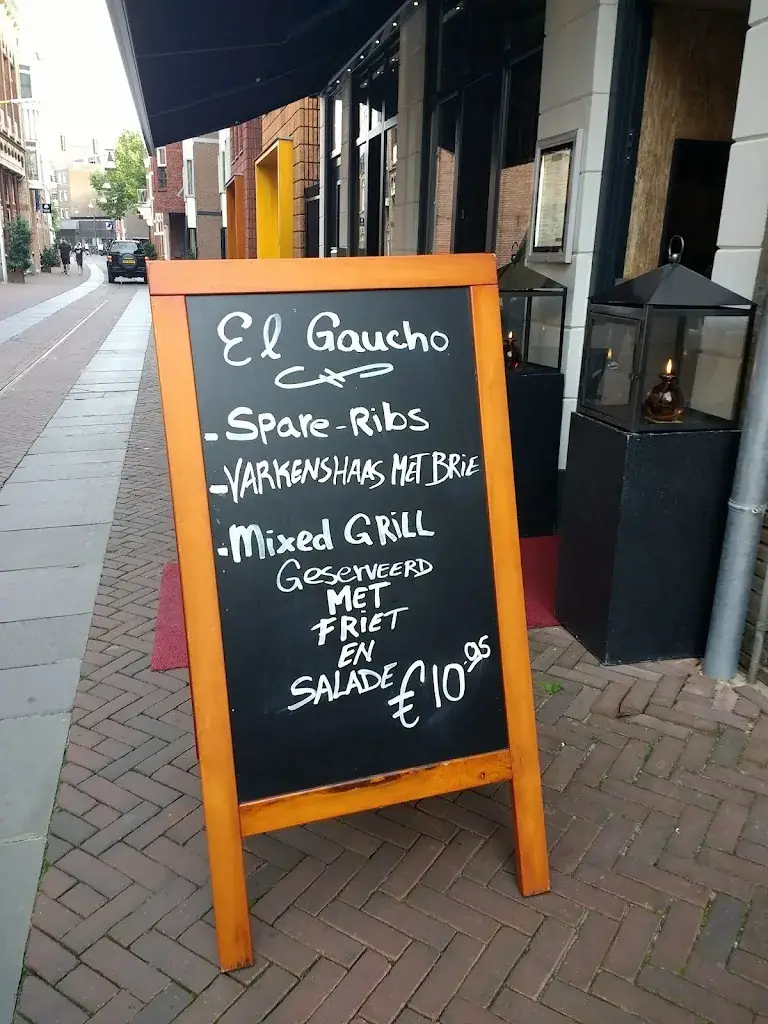 El Gaucho
- Spare-Ribs
- VARKENSHAAS MET BRIE
- Mixed GRILL
GESERVEERD
MET
FRIET
EN
SALADE €10.95